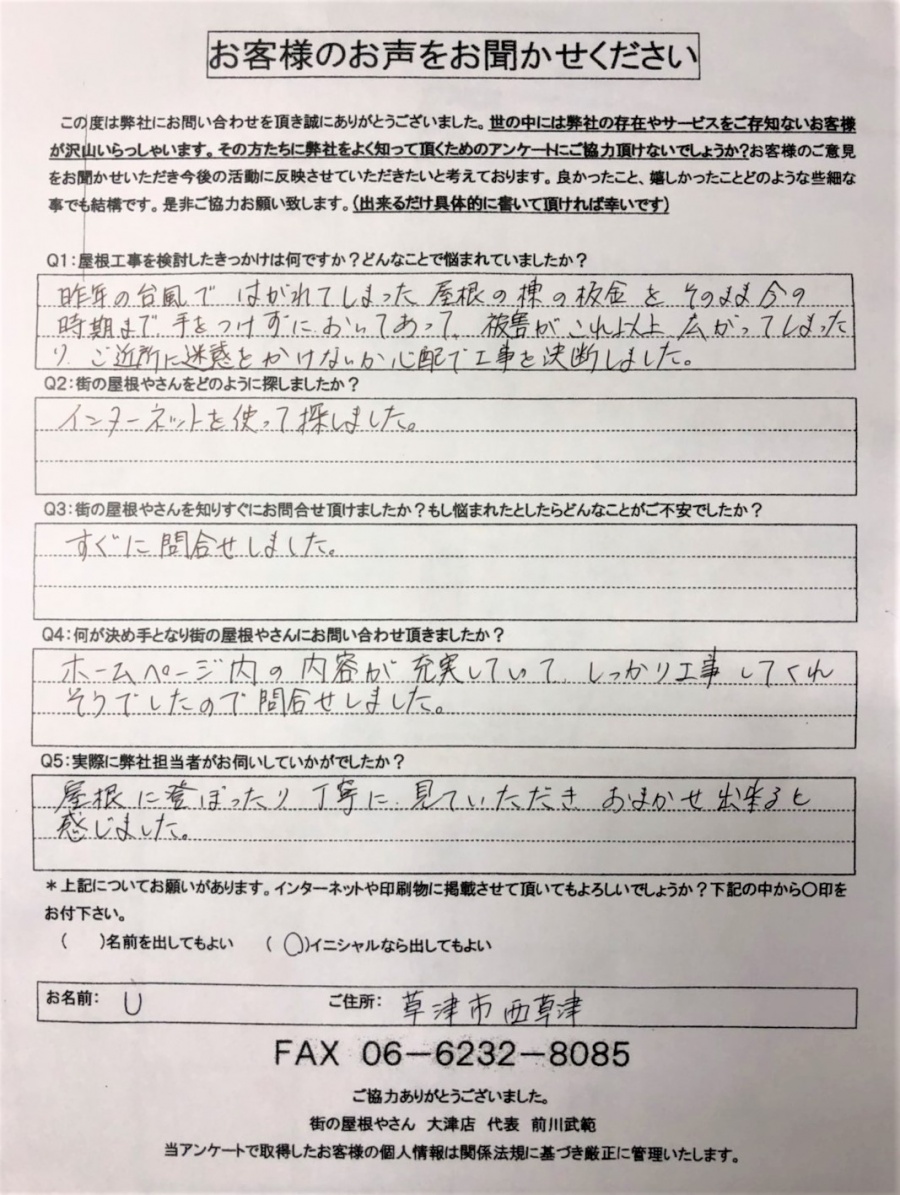 お客様のお声をお聞かせください
この度は弊社にお問い合わせを頂き誠にありがとうございました。世の中には弊社の存在やサービスをご存知ないお客様
が沢山いらっしゃいます。その方たちに弊社をよく知って頂くためのアンケートにご協力頂けないでしょうか?お客様のご意見
をお聞かせいただき今後の活動に反映させていただきたいと考えております。良かったこと、嬉しかったことどのような些細な
事でも結構です。是非ご協力お願い致します。(出来るだけ具体的に書いて頂ければ幸いです)
Q1:屋根工事を検討したきっかけは何ですか?どんなことで悩まれていましたか?
昨年の台風で はがれてしまった 屋根の棟の板金を そのまま今の
時期まで、手をつけずに おいてあって、被害がこれ以上 広がってしまった
り、ご近所に迷惑をかけないか心配で工事を決断しました。
Q2:街の屋根やさんをどのように探しましたか?
インターネットを使って探しました。
Q3:街の屋根やさんを知りすぐにお問合せ頂けましたか?もし悩まれたとしたらどんなことがご不安でしたか?
すぐに問合せしました。
Q4:何が決め手となり街の屋根やさんにお問い合わせ頂きましたか?
ホームページ内の内容が充実していて、しっかり工事してくれ
そうでしたので問合せしました。
Q5:実際に弊社担当者がお伺いしていかがでしたか?
屋根に登ぼったり丁寧に、見ていただき おまかせ出来ると
感じました。
*上記についてお願いがあります。インターネットや印刷物に掲載させて頂いてもよろしいでしょうか?下記の中から〇印を
お付下さい。
( )名前を出してもよい (〇)イニシャルなら出してもよい
お名前: U ご住所: 草津市西草津
FAX 06-6232-8085
ご協力ありがとうございました。
街の屋根やさん 大津店 代表 前川武範
当アンケートで取得したお客様の個人情報は関係法規に基づき厳正に管理いたします。